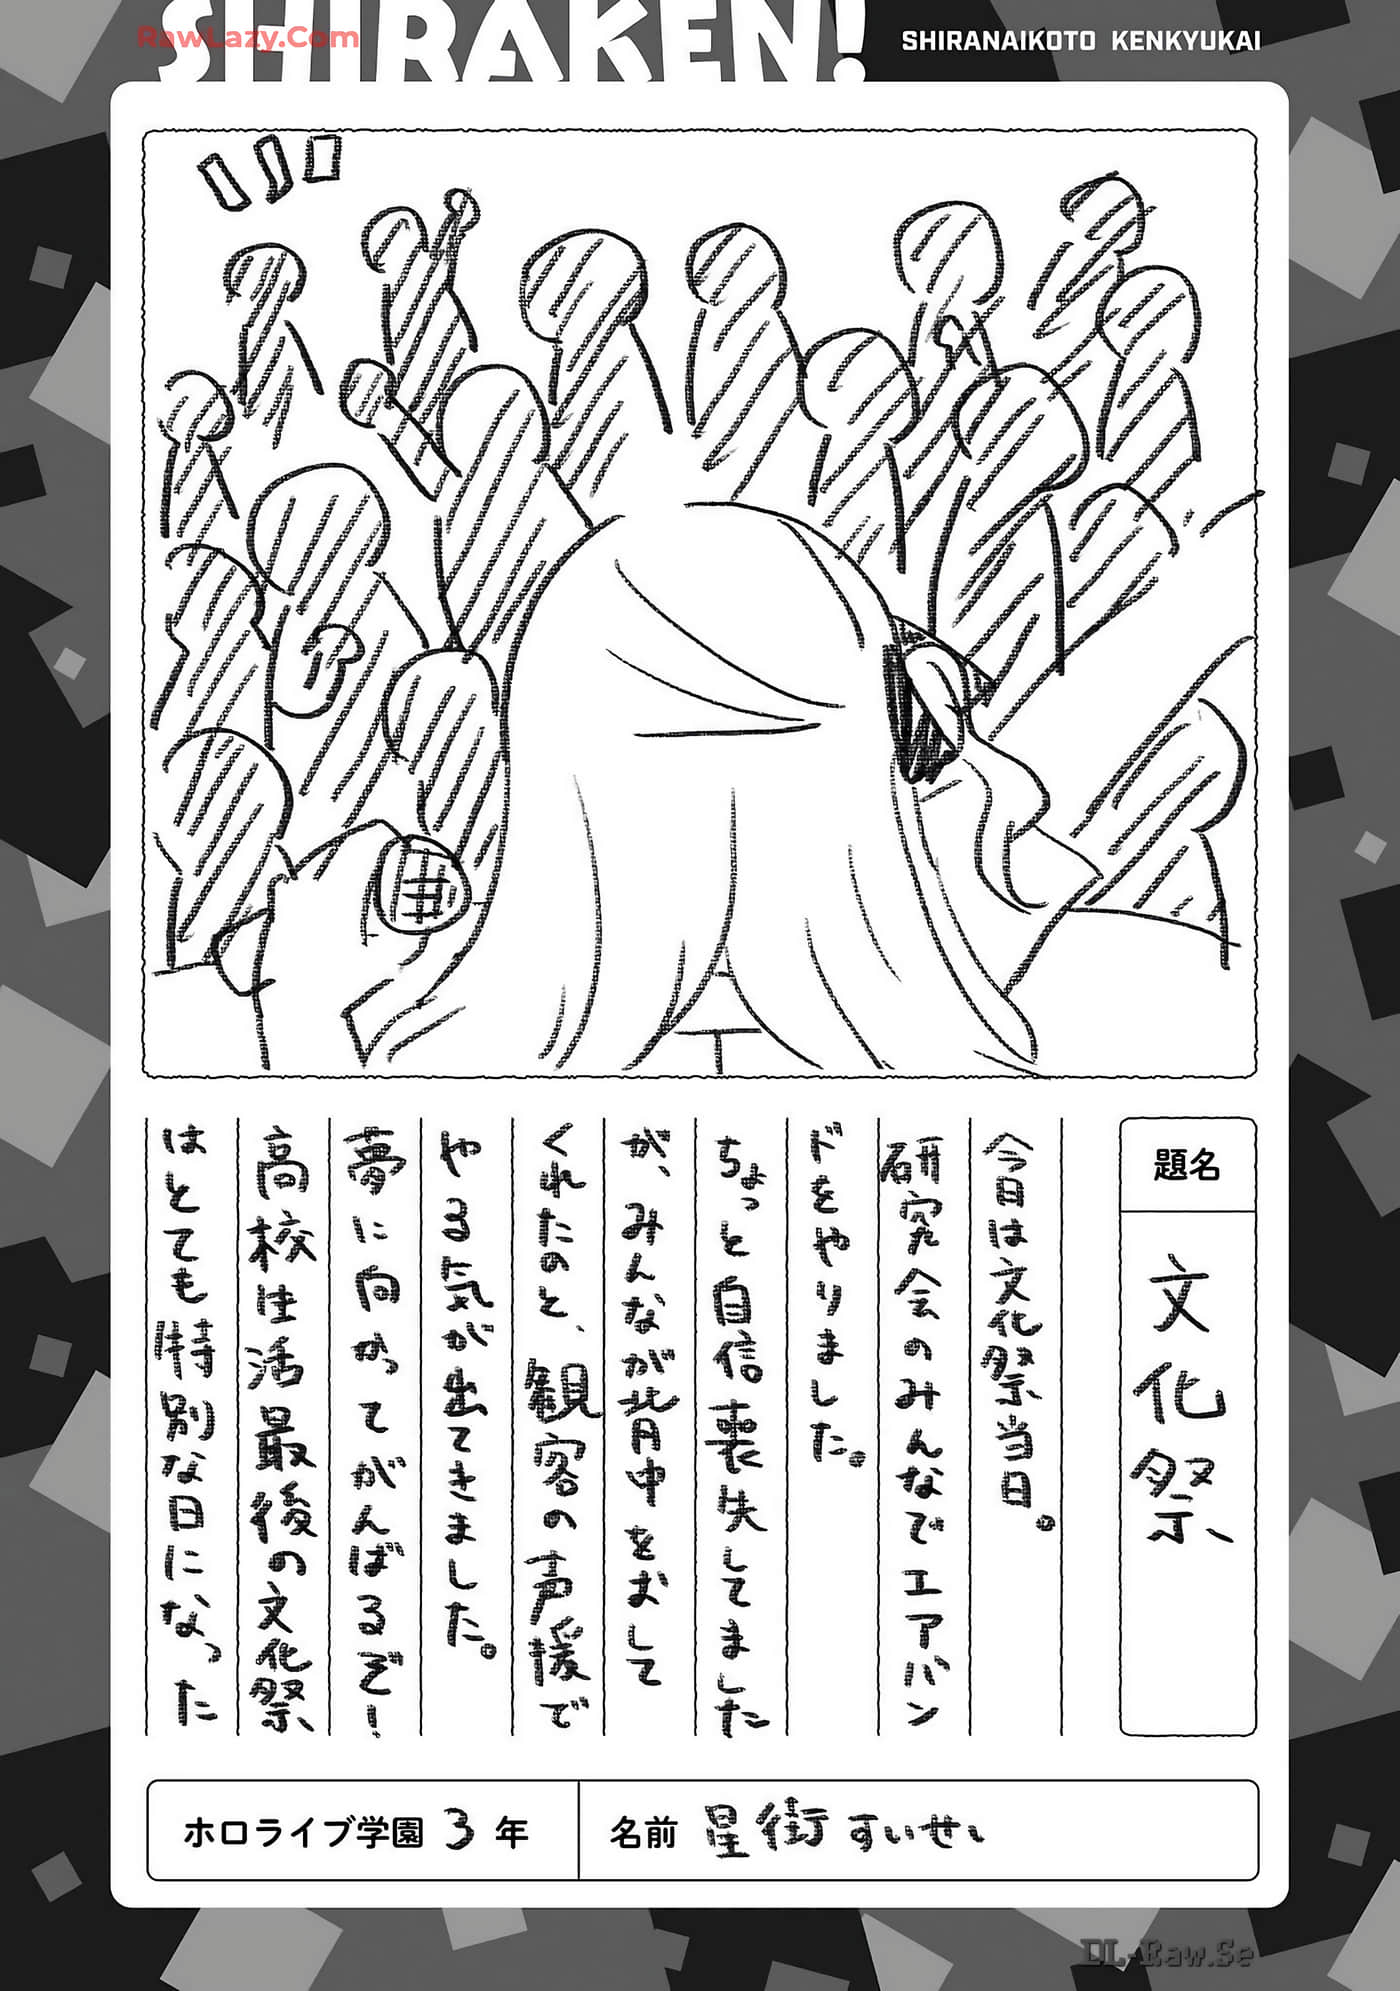 SHIRAKEN!
RawLazy.Com
SHIRANAIKOTO KENKYUKAI
題名
文化祭
今日は文化祭当日。
研究会のみんなでエアバン
ドをやりました。
ちょっと自信喪失してました
が、みんなが背中をおして
くれたのと、観客の声援で
やる気が出てきました。
夢に向かってがんばるぞ!
高校生活最後の文化祭
はとても特別な日になった
ホロライブ学園 3 年
名前 星街すいせい
DL-Raw.Se